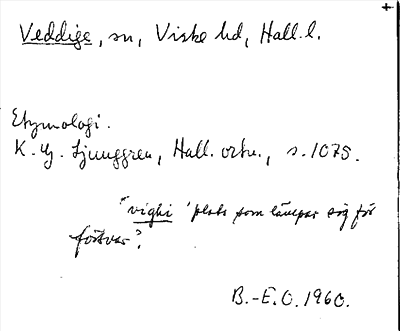 Veddige, sn, Viske hd, Hall. l.
Etymologi.
K. G. Ljunggren, Hall. ortn., s. 1075.
"vighi 'plats som lämpar sig för
försvar'?
B.-E. O. 1960.